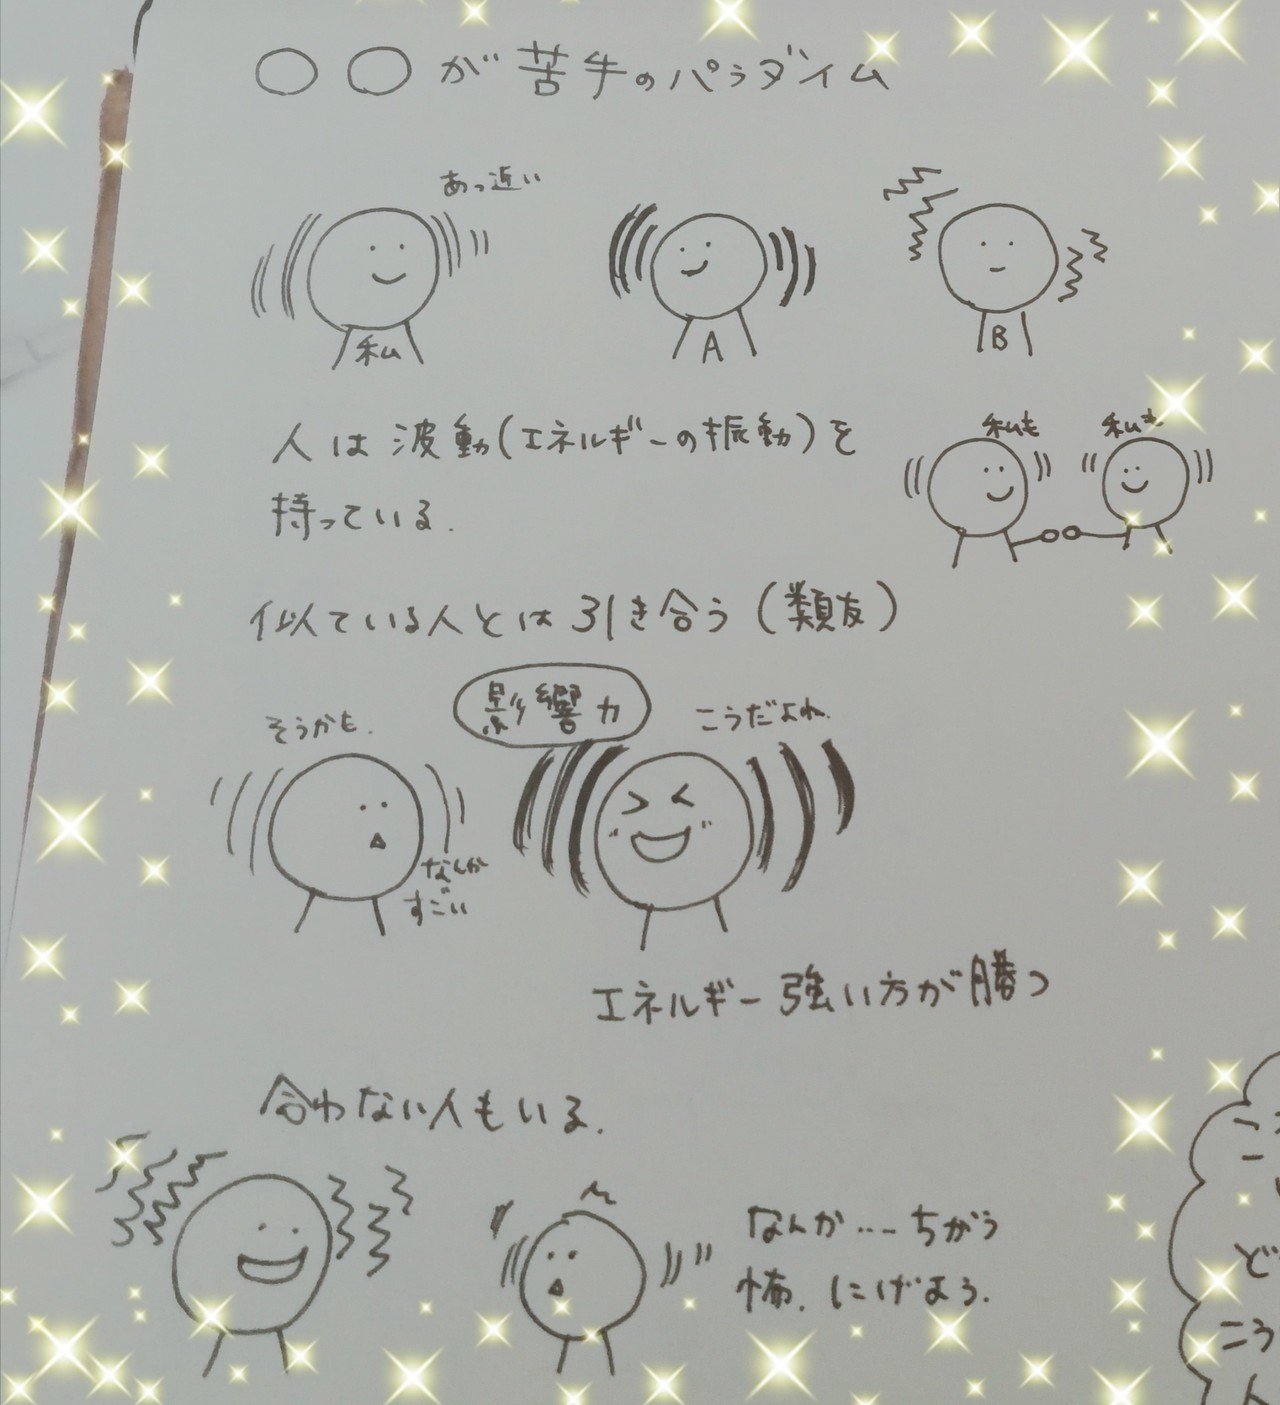 ○○が苦手のパラダイム
あっ近い
私
A
B
人は波動(エネルギーの振動)を
持っている.
私も
私も
似ている人とは引き合う(類友)
影響力
そうかも.
こうだよね.
なんか
すごい
エネルギー強い方が勝つ
合わない人もいる.
なんか…ちがう
怖.にげよう.
ど
こう